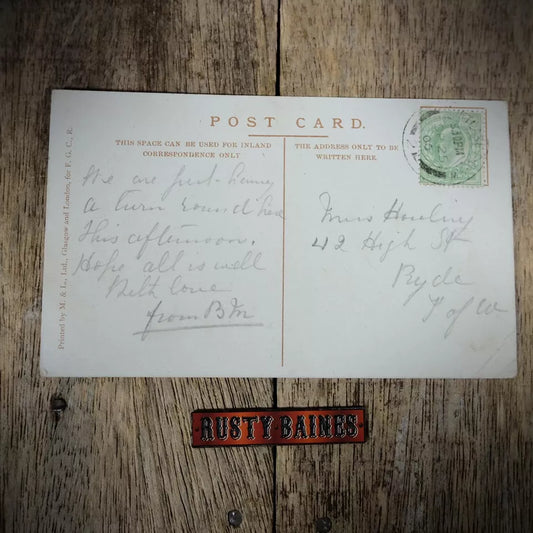 POST CARD.
THIS SPACE CAN BE USED FOR INLAND
CORRESPONDENCE ONLY
THE ADDRESS ONLY TO BE
WRITTEN HERE.
We are just having
a turn round here
this afternoon.
Hope all is well
With love
from B M
Miss
42 High St
Ryde
I of W
Printed by M. & L., Ltd., Glasgow and London, for F. G. C., R.
RUSTY BAINES